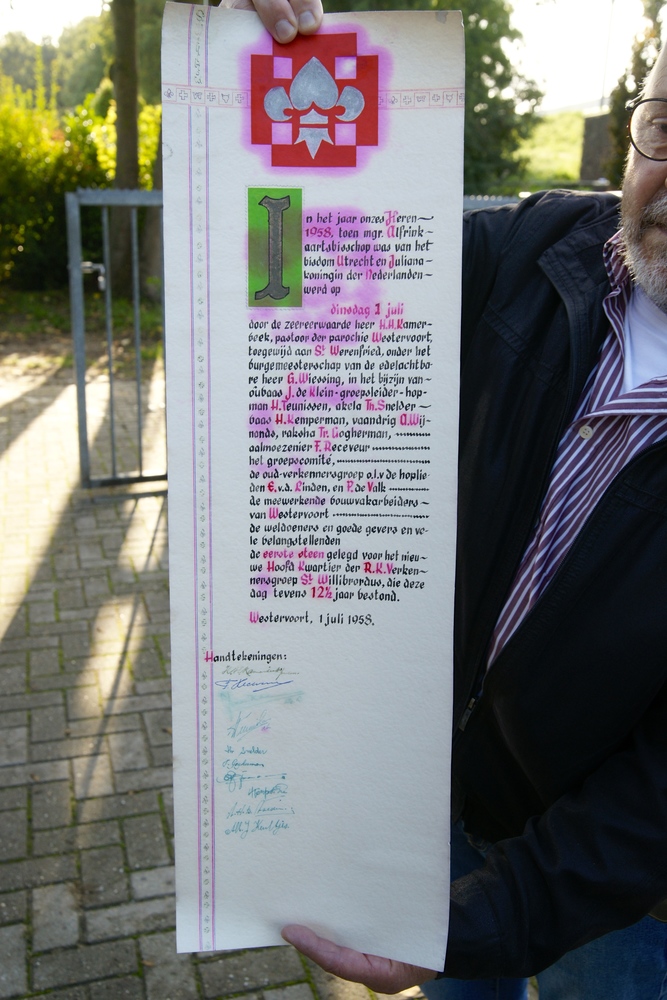 In het jaar onzes Heren
1958, toen mgr. Alfrink
aartsbisschop was van het
bisdom Utrecht en Juliana
koningin der Nederlanden
werd op
dinsdag 1 juli
door de zeereerwaarde heer H.H.Kamer-
beek, pastoor der parochie Westervoort,
toegewijd aan St Werenfried, onder het
burgemeesterschap van de edelachtba-
re heer G. Wiessing, in het bijzijn van
oubaas J. de Klein-groepsleider-hop-
man H. Teunissen, akela Th. Snelder
baas H. Kemperman, vaandrig A. Wij-
nands, raksha Tr. Gogherman,
aalmoezenier F. Receveur
het groepscomité,
de oud-verkennersgroep o.l.v de hoplie-
den E. v.d. Linden, en P. de Valk
de meewerkende bouwvakarbeiders
van Westervoort
de weldoeners en goede gevers en ve-
le belangstellenden
de eerste steen gelegd voor het nieu-
we Hoofd Kwartier der R.K. Verken-
nersgroep St Willibrordus, die deze
dag tevens 12½ jaar bestond.
Westervoort, 1 juli 1958.
Handtekeningen: